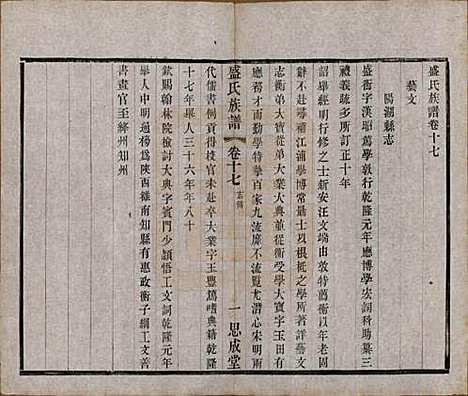 盛氏族譜卷十七
藝文
陽湖縣志
盛衡字漢瞻篤學敦行乾隆元年應博學宏詞科助纂三
禮義疏多所訂正十年
詔舉經明行修之士新安汪文端由敦特薦衡以年老固
辭不赴尋補江浦學博常最士以根柢之學所著詳藝文
志衡弟大寶從弟大業大典並從衡受學大寶字玉田有
應務才而勤學特摯百家九流靡不流覽尤潛心宋明兩
代儒書例貢得校官未赴卒大業字王豐篤嗜典籍乾隆
盛氏族譜
卷十七
志傳
一
思成堂
十七年舉人三十六年年八十
欽賜翰林院檢討大典字賓門少穎悟工文詞乾隆元年
舉人中明通榜為陝西雒南知縣有惠政衡子綱工文善
書畫官至絳州知州